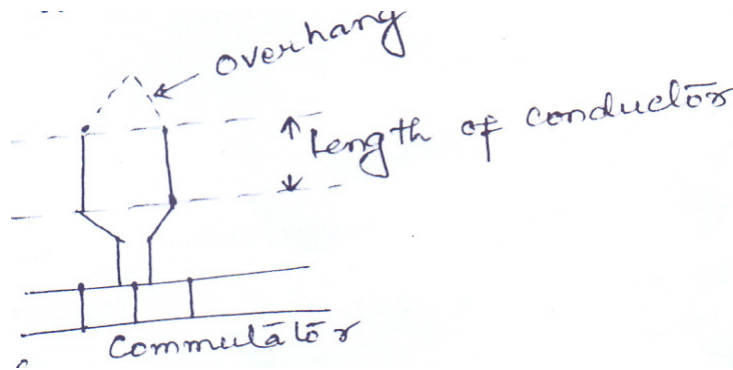 overhang
Length of conductor
Commutator